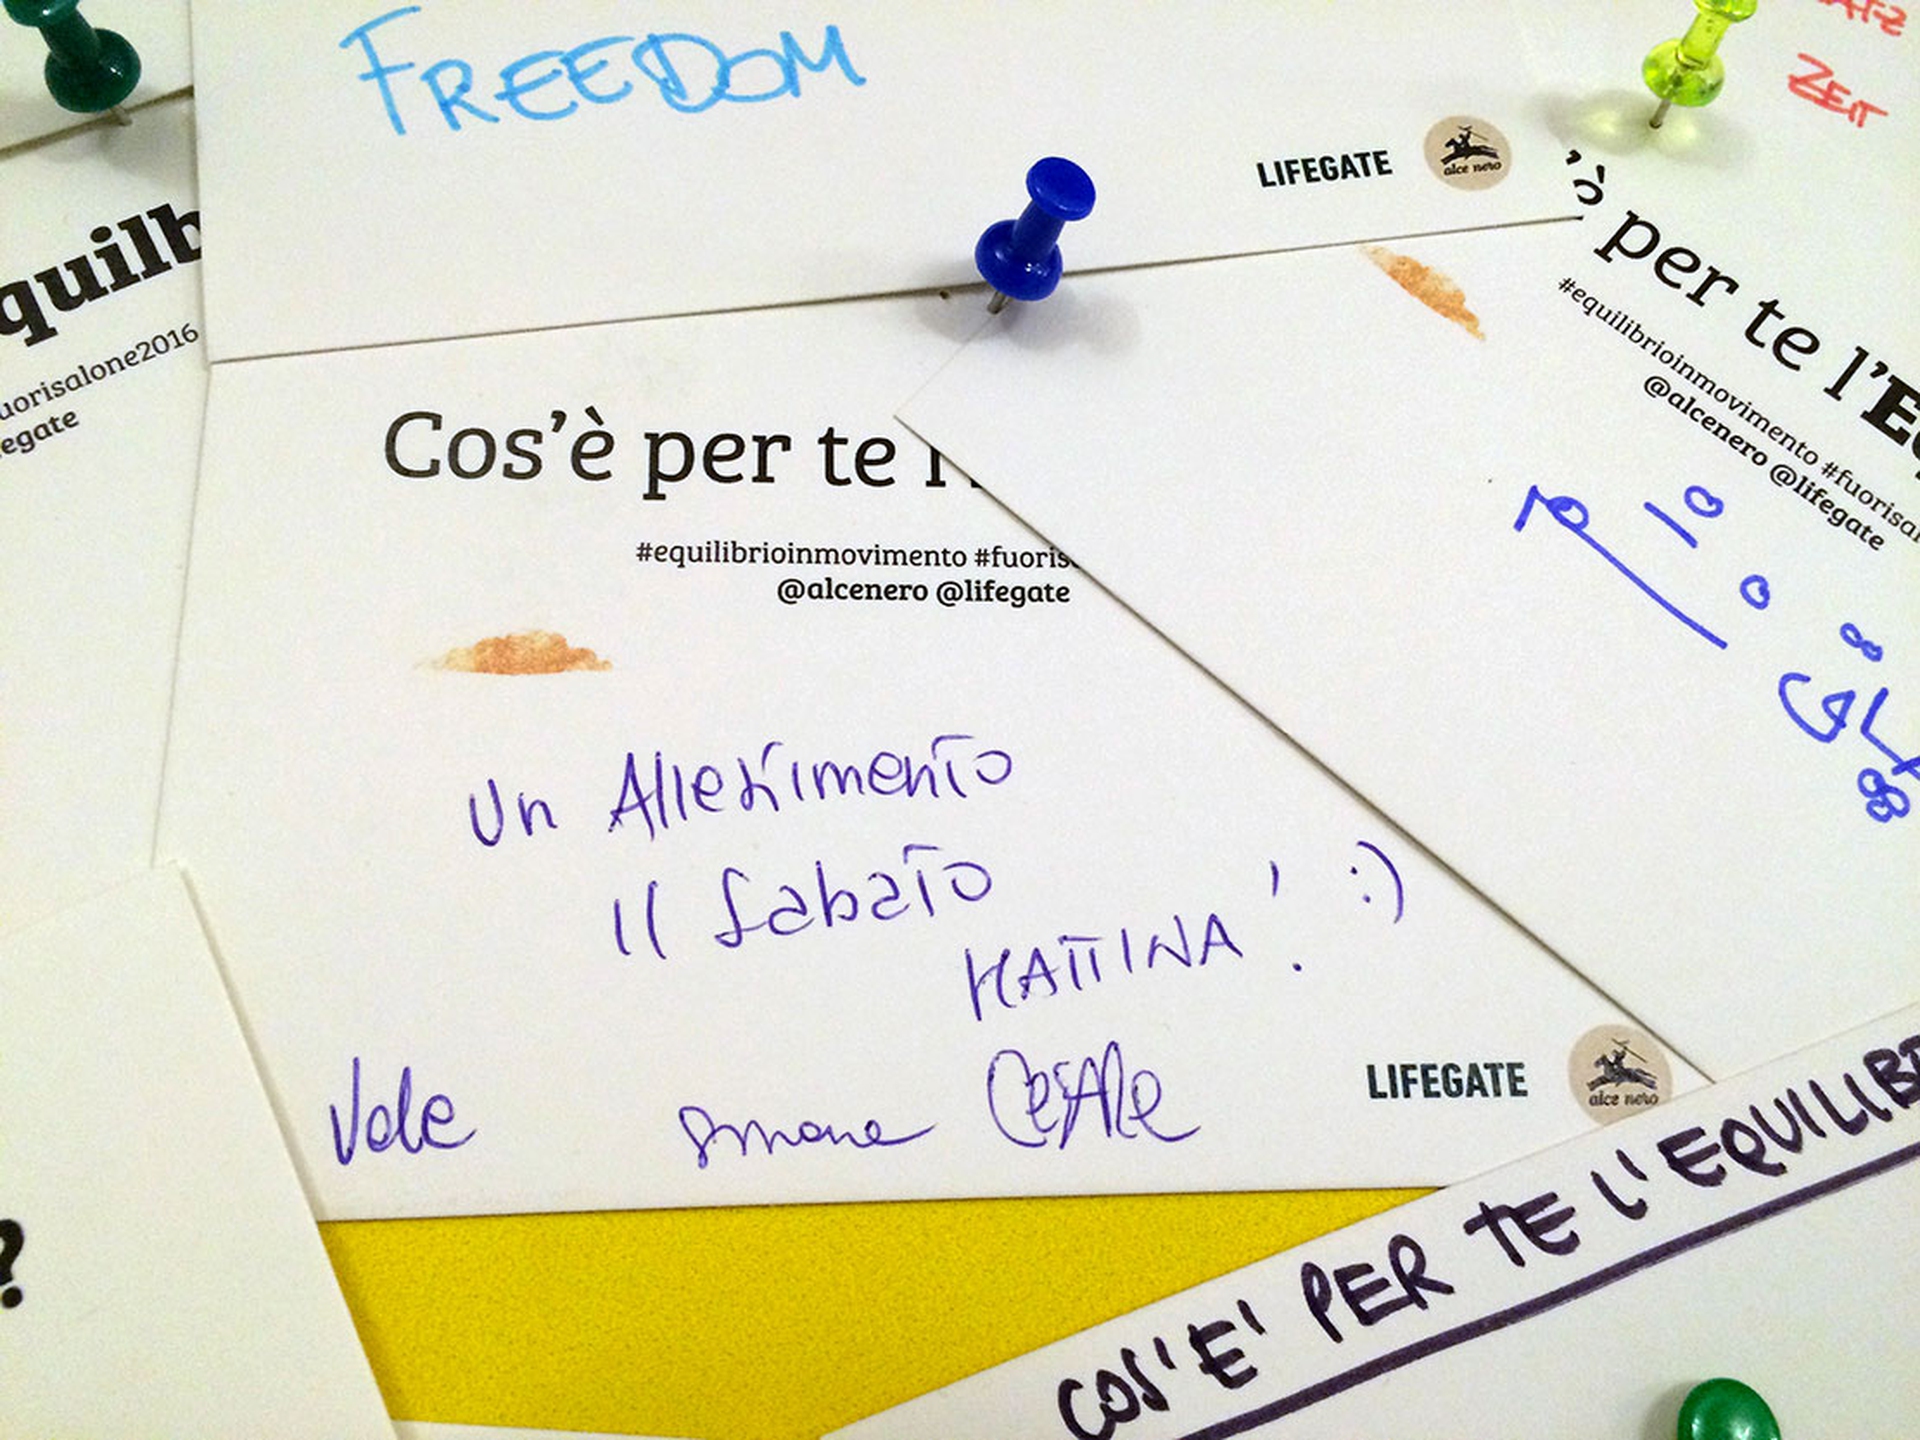 FREEDOM
ZEIT
LIFEGATE
alce nero
quilb
uorisalone2016
egate
'è per te l'Eq
#equilibrioinmovimento #fuorisa
@alcenero @lifegate
Cos'è per te l'
#equilibrioinmovimento #fuoris
@alcenero @lifegate
Un Allestimento
Il Sabato
MATTINA! :)
Vale Simone CESARE
LIFEGATE
alce nero
?
COS'E' PER TE L'EQUILIBR